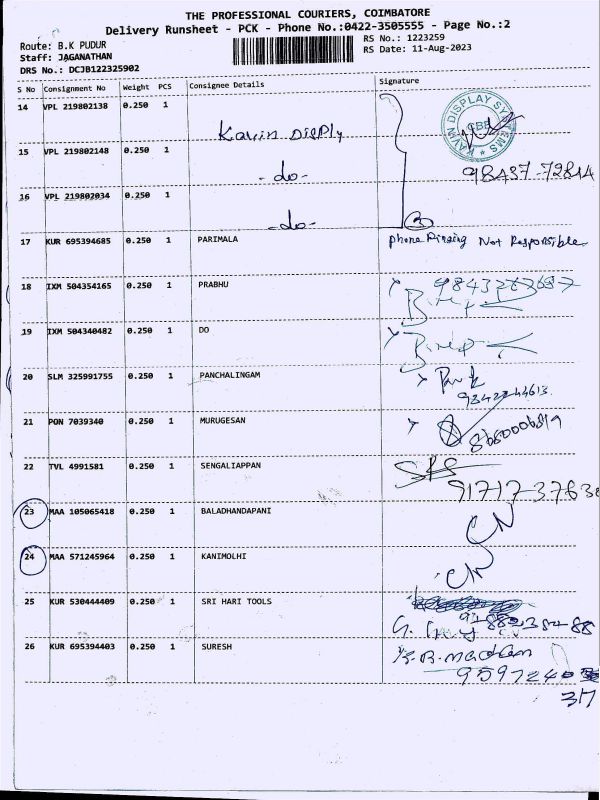 THE PROFESSIONAL COURIERS, COIMBATORE
Delivery Runsheet - PCK - Phone No.:0422-3505555 - Page No.:2
Route: B.K PUDUR
RS No.: 1223259
Staff: JAGANATHAN
RS Date: 11-Aug-2023
DRS No.: DCJB122325902
S No Consignment No Weight PCS Consignee Details Signature
14 VPL 219802138 0.250 1 Kavin Disply
KAVIN DISPLAY SYSTEMS CBE
15 VPL 219802148 0.250 1 -do-
98437-72814
16 VPL 219802034 0.250 1 -do- 3
17 KUR 695394685 0.250 1 PARIMALA Phone Ringing Not Responsible
18 IXM 504354165 0.250 1 PRABHU
19 IXM 504340482 0.250 1 DO
20 SLM 325991755 0.250 1 PANCHALINGAM
21 PON 7039340 0.250 1 MURUGESAN
22 TVL 4991581 0.250 1 SENGALIAPPAN
91717-3763
23 MAA 105065418 0.250 1 BALADHANDAPANI CN
24 MAA 571245964 0.250 1 KANIMOLHI CN
25 KUR 530444409 0.250 1 SRI HARI TOOLS
26 KUR 695394403 0.250 1 SURESH
959724
317